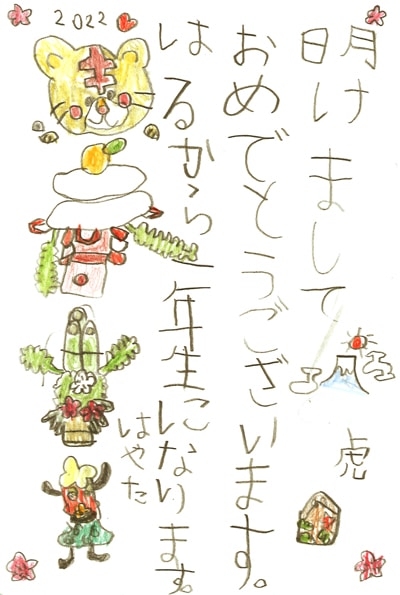 2022
明けまして
おめでとうございます。
はるから一年生になります。
はやた
虎